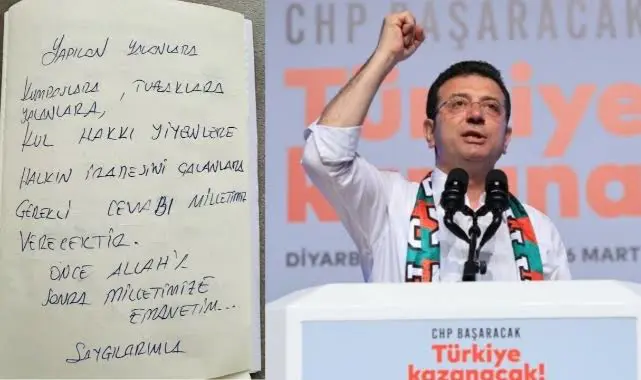 YAPILAN YALANLARA
KUMPASLARA, TUZAKLARA
YALANLARA,
KUL HAKKI YİYENLERE
HALKIN İRADESİNİ ÇALANLARA
GEREKLİ CEVABI MİLLETİMİZ
VERECEKTİR.
ÖNCE ALLAH'A
SONRA MİLLETİMİZE
EMANETİM...
SAYGILARIMLA
CHP BAŞARACAK
Türkiye
kazana
DİYARB 6 MART
CHP BAŞARACAK
Türkiye
kazanacak!